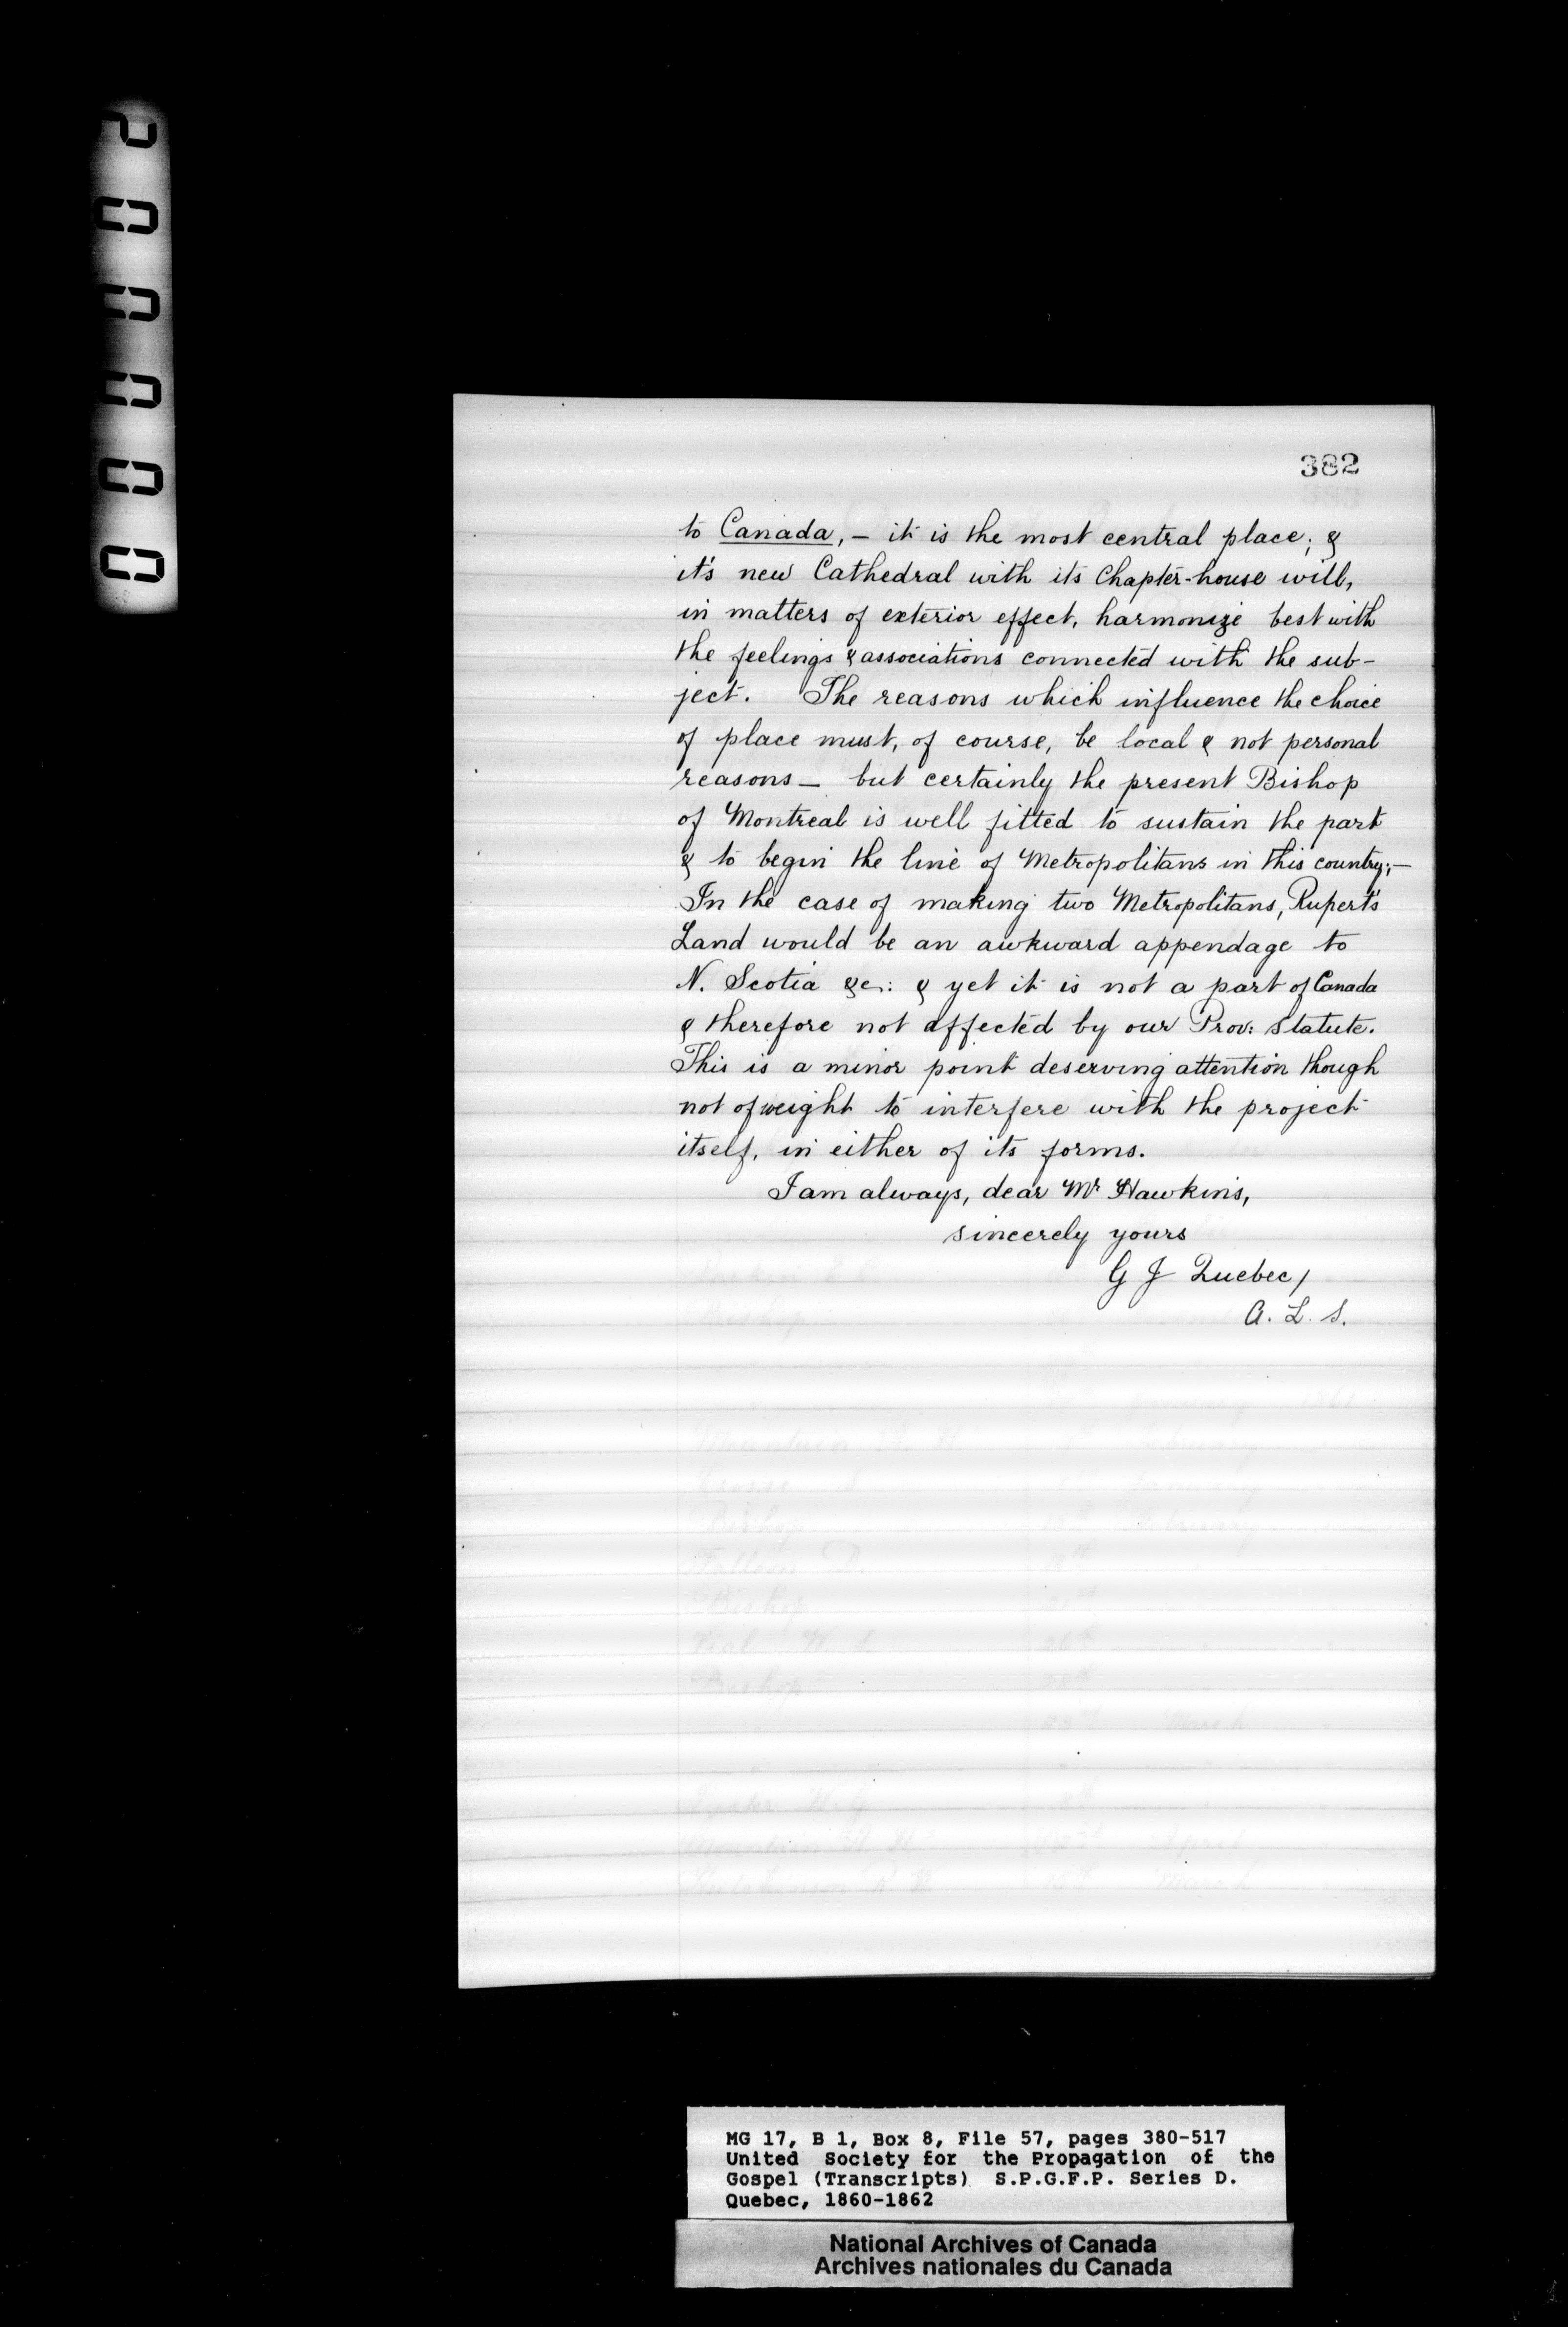 382
to Canada, — it is the most central place; &
it's new Cathedral with its Chapter-house will,
in matters of exterior effect, harmonize best with
the feelings & associations connected with the sub-
ject. The reasons which influence the choice
of place must, of course, be local & not personal
reasons — but certainly the present Bishop
of Montreal is well fitted to sustain the part
& to begin the line of Metropolitans in this country; —
In the case of making two Metropolitans, Rupert's
Land would be an awkward appendage to
N. Scotia &c.: & yet it is not a part of Canada
& therefore not affected by our Prov: Statute.
This is a minor point deserving attention though
not of weight to interfere with the project
itself, in either of its forms.
I am always, dear Mr Hawkins,
sincerely yours
G J Quebec,
A. L. S.
MG 17, B 1, Box 8, File 57, pages 380-517
United Society for the Propagation of the
Gospel (Transcripts) S.P.G.F.P. Series D.
Quebec, 1860-1862
National Archives of Canada
Archives nationales du Canada